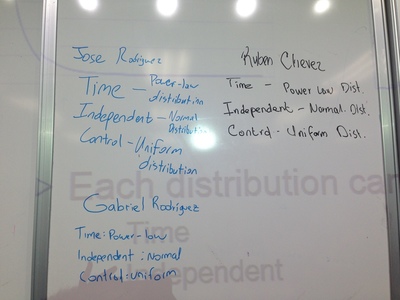 Jose Rodriguez
Time - Power-low
distribution
Independent - Normal
Distribution
Control - Uniform
distribution
Ruben Chevez
Time - Power Low Dist.
Independent - Normal Dist.
Control - Uniform Dist.
> Each distribution can
Gabriel Rodriguez
Time: Power-low
Independent: Normal
Control: uniform
Time
Independent